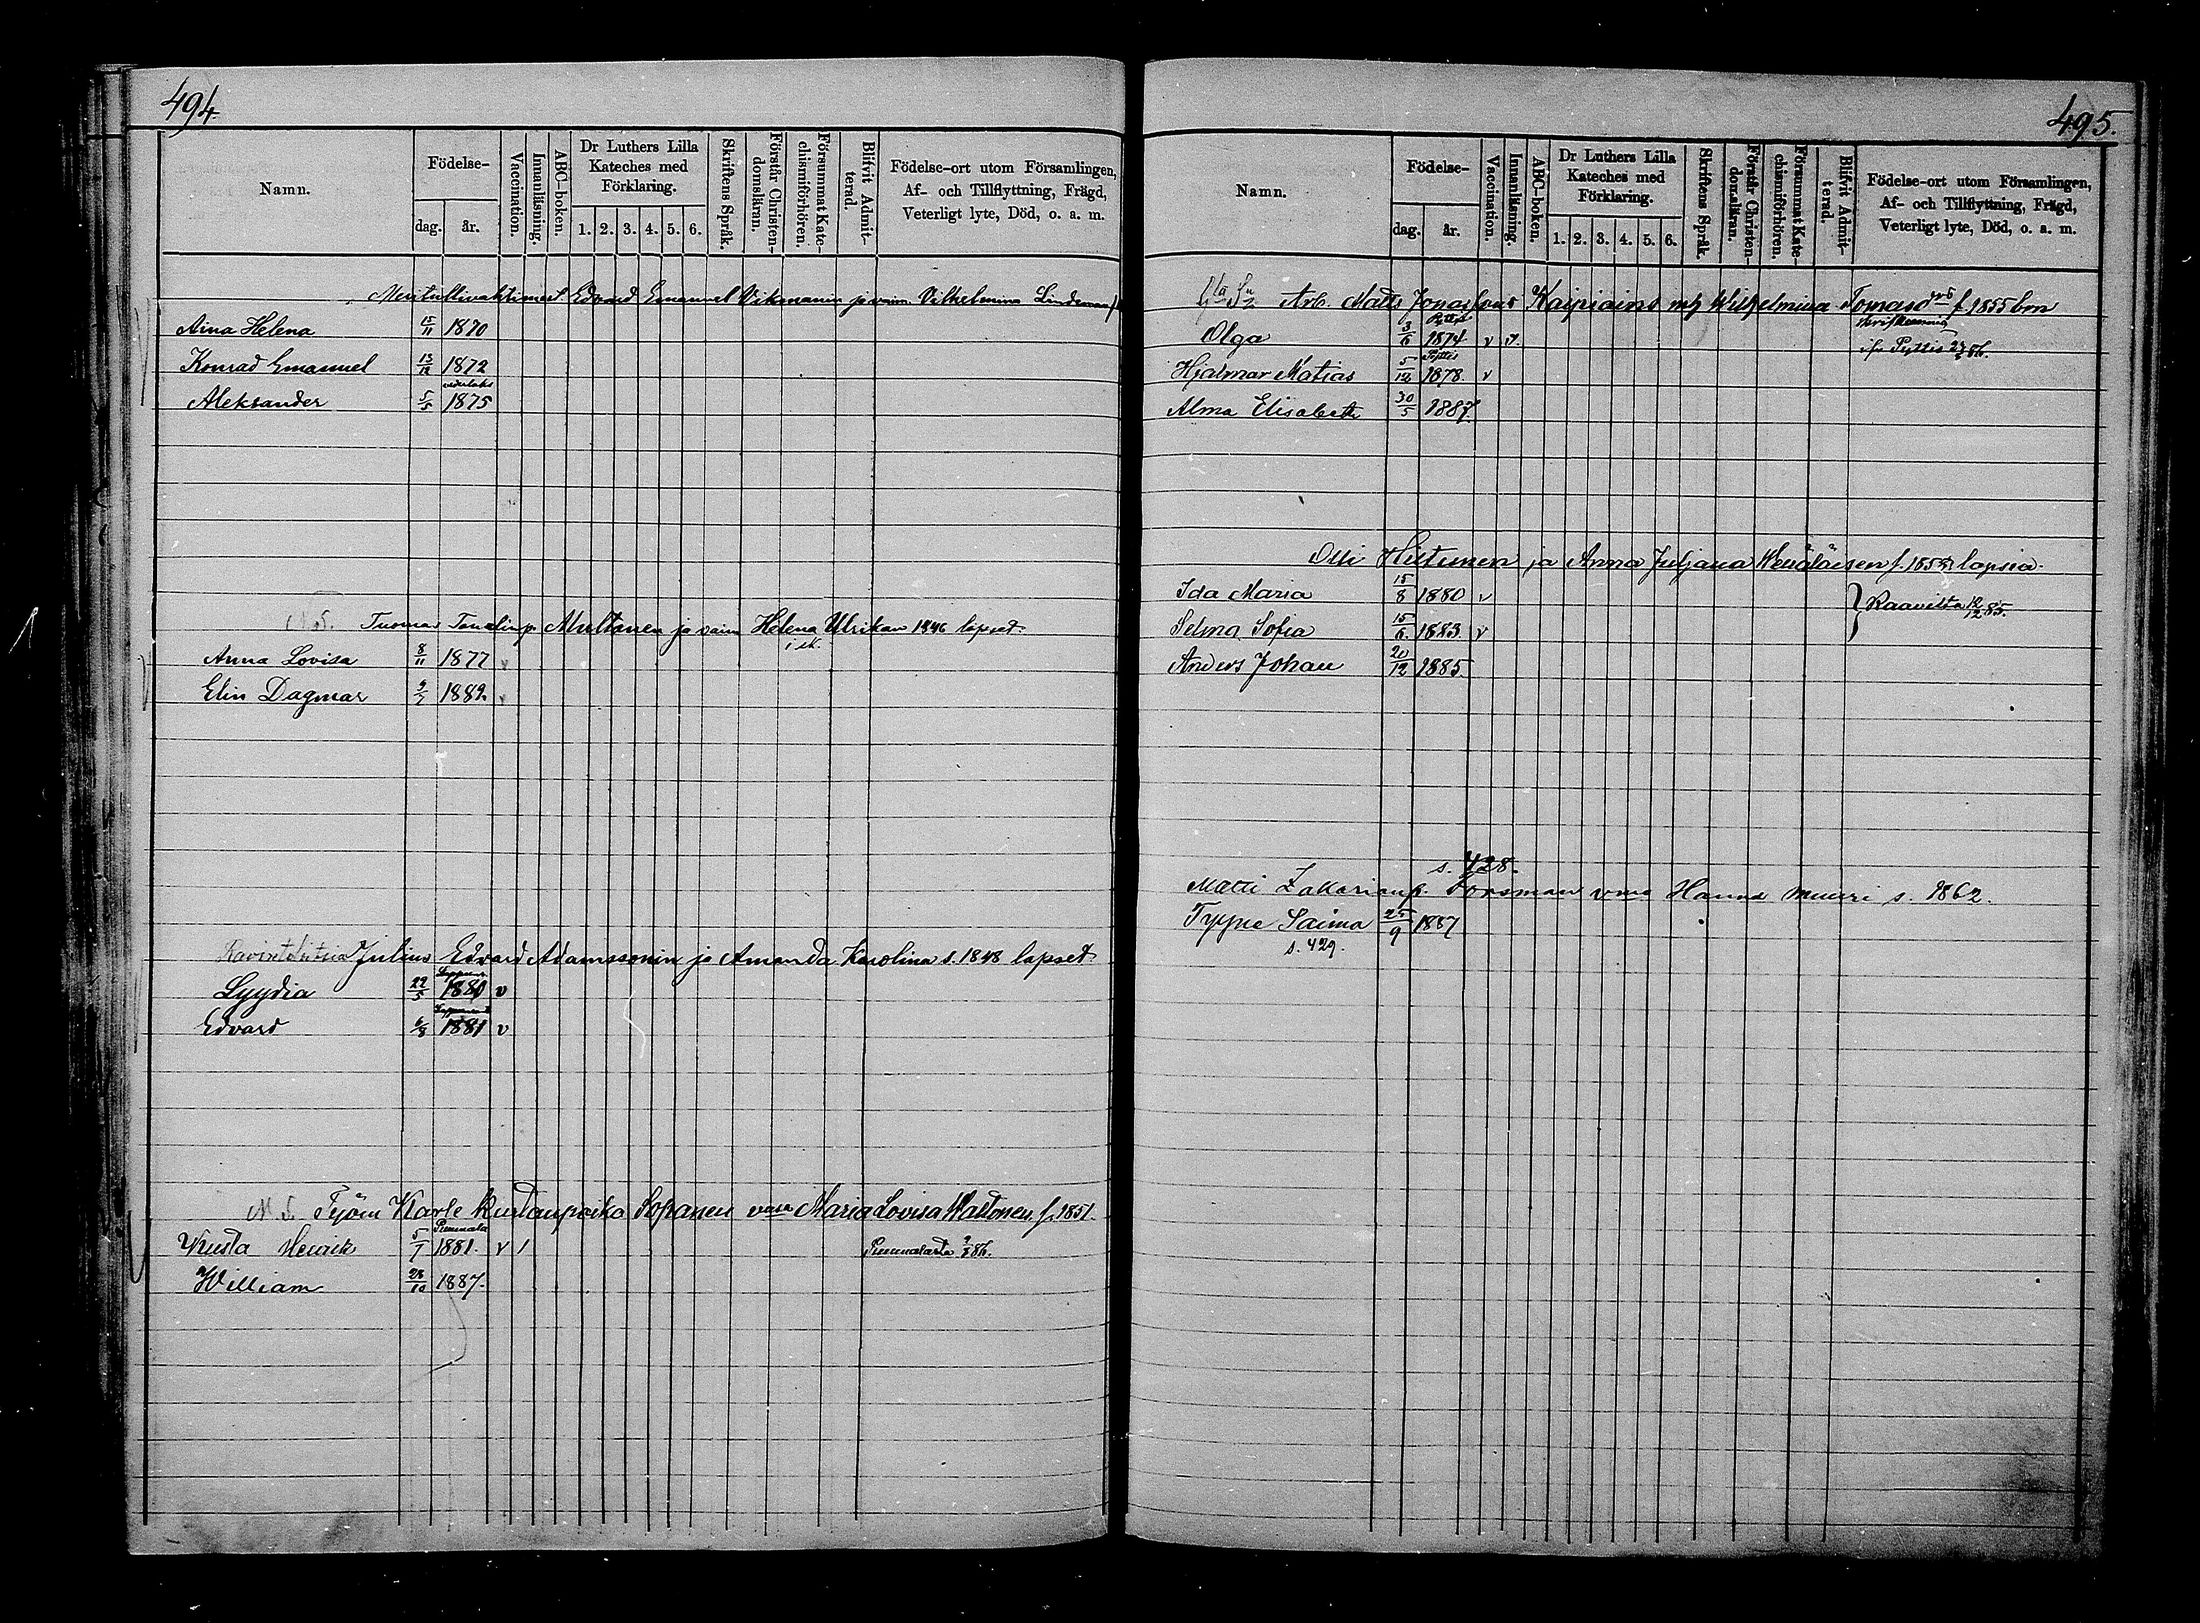 494.
Namn.
Födelse-
dag.
år.
Vaccination.
Innanläsning.
ABC-boken.
Dr Luthers Lilla
Kateches med
Förklaring.
1. 2. 3. 4. 5. 6.
Skriftens Språk.
Förstår Christen-
domsläran.
Försummat Kate-
chismiförhören.
Blifvit Admit-
terad.
Födelse-ort utom Församlingen,
Af- och Tillflyttning, Frägd,
Veterligt lyte, Död, o. a. m.
Edvard Emanuel Vikmanin ja vaim. Vilhelmina Lindeman
Aina Helena 15/11 1870
Konrad Emanuel 13/12 1872
Aleksander 5/5 1875
Tuomas Ahltonen ja vaim Helena Ulrikan 1846 lapset
Anna Lovisa 8/11 1877 v
Elin Dagmar 1882 v
Julius Edvard Adamssonin ja Amanda Karolina s. 1848 lapset
Lyydia 22/5 1880 v
Edvard 6/8 1881 v
Työm Karle Kustaanpoika Sopanen vmo Maria Lovisa Waltonen f. 1851.
Pummala
Kusta Henrik 5/7 1881. v / Pummalasta 86.
William 28/10 1887.
495.
Namn.
Födelse-
dag.
år.
Vaccination.
Innanläsning.
ABC-boken.
Dr Luthers Lilla
Kateches med
Förklaring.
1. 2. 3. 4. 5. 6.
Skriftens Språk.
Förstår Christen-
domsläran.
Försummat Kate-
chismiförhören.
Blifvit Admit-
terad.
Födelse-ort utom Församlingen,
Af- och Tillflyttning, Frägd,
Veterligt lyte, Död, o. a. m.
Arb. Matts Jonasson Kaipiains m/h Wilhelmina f 1855 brn
Pyttis
Olga 3/6 1874 v ifr Pyttis 86.
Pyttis
Hjalmar Matias 5/12 1878. v
Alma Elisabeth 30/5 1887.
Olli Hiltunen ja Anna Juljana Wenäläisen lapsia.
Ida Maria 15/8 1880 v Raavilta 12/12 85.
Selma Sofia 15/6 1883 v
Anders Johan 20/12 1885.
s. 428.
Matti Zakarianp. Forsman vmo Hanna Muuri s. 1862.
Tyyne Saima 25/9 1887
s. 429.